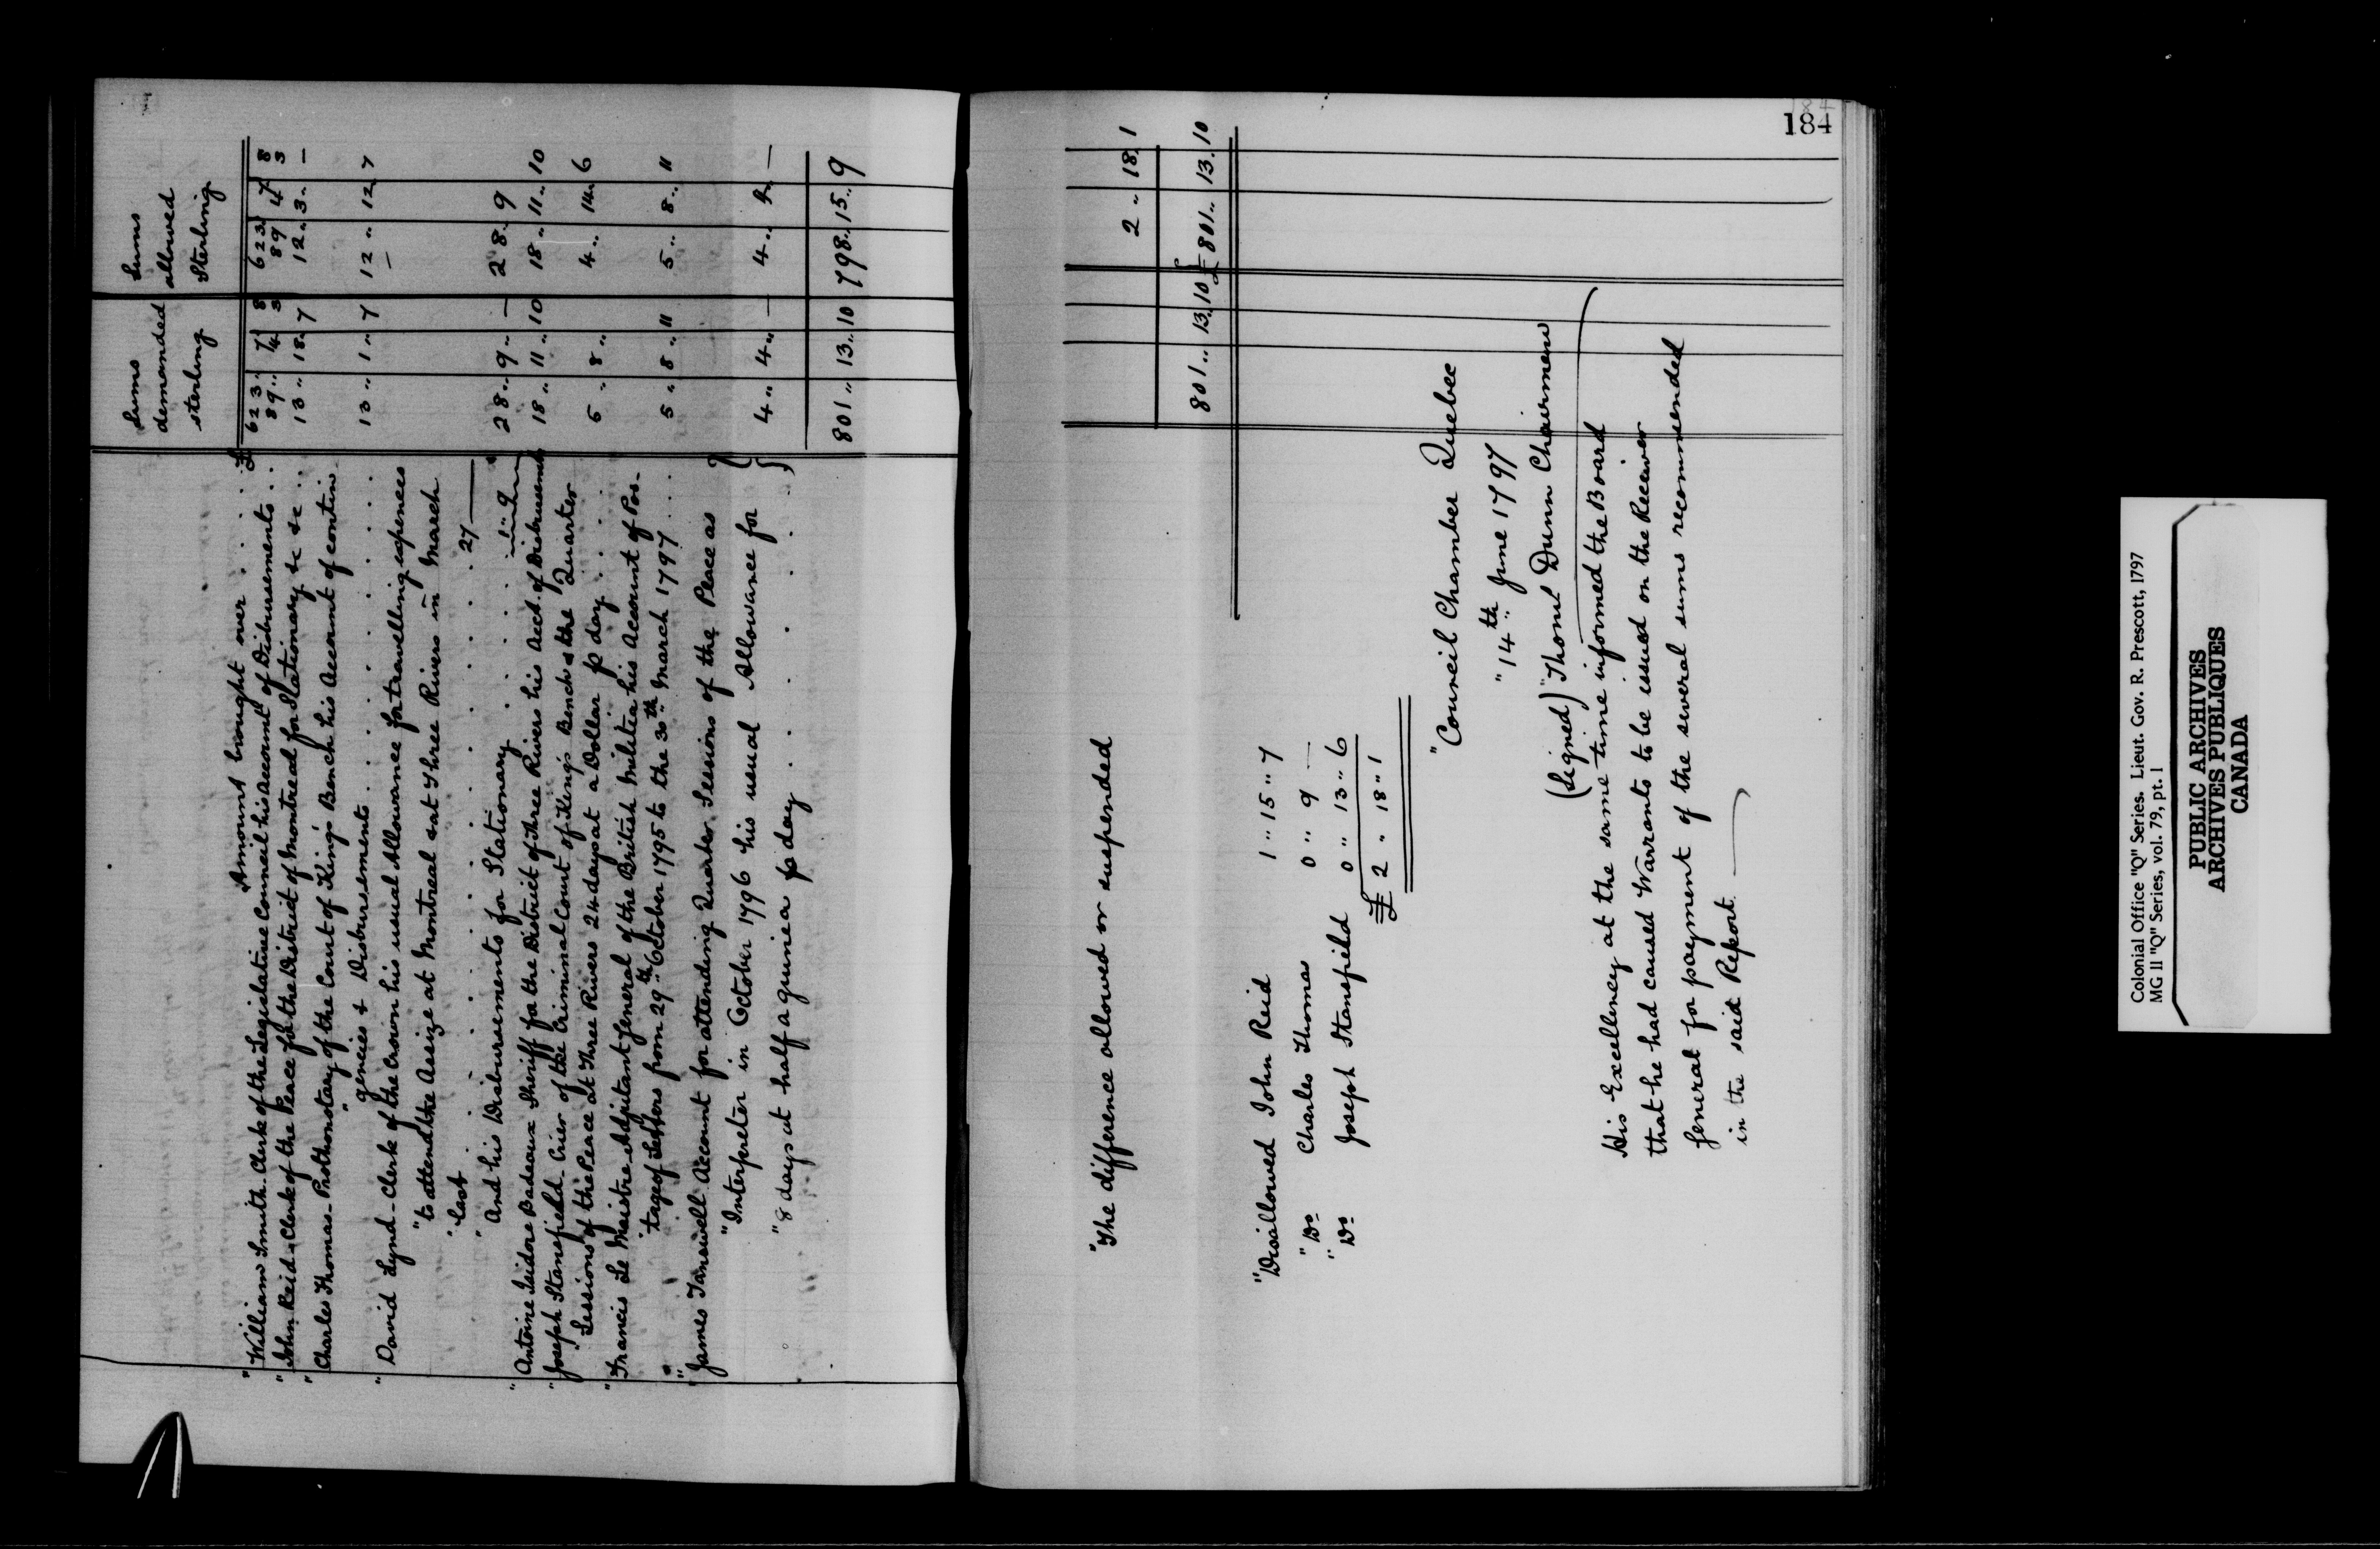 Sums demanded sterling
Sums allowed Sterling
Amount brought over . . . . £ 623 .. 7 8 623 7 8
" William Smith - Clerk of the Legislative Council his account of Disbursements . . 89 .. 4 3 89 4 3
" John Reid - Clerk of the Peace for the District of Montreal for Stationary &c &c . . 13 .. 18 .. 7 12 .. 3 .. —
" Charles Thomas - Prothonotary of the Court of King's Bench his Account of contin-
" gencies & Disbursements . . . . . . . . 13 .. 1 .. 7 12 .. 12 .. 7
" David Lynd - Clerk of the Crown his usual Allowance for travelling expences
" to attend the Assize at Montreal & at Three Rivers in March
" last . . . . . . . . . . . 27 —
" And his Disbursements for Stationary . . . . . . 1 " 9 28 .. 9 .. — 28 .. 9
" Antoine Isidore Badeaux Sheriff for the District of Three Rivers his Acct. of Disbursements 18 .. 11 .. 10 18 .. 11 .. 10
" Joseph Stansfield - Crier of the Criminal Court of King's Bench & the Quarter
" Sessions of the Peace at Three Rivers 24 days at a Dollar p day . . . . 5 .. 8 .. 4 .. 14 .. 6
" Francis Le Maistre - Adjutant General of the British Militia his Account of Pos-
" tage of Letters from 29th October 1795 to the 30th March 1797 . . . 5 .. 8 .. 11 5 .. 8 .. 11
" James Tanswell Account for attending Quarter Sessions of the Peace as
" Interpreter in October 1796 his usual Allowance for
" 8 days at half a guinea p day . . . . . . . 4 .. 4 .. — 4 .. 4 .. —
801 .. 13 .. 10 798 .. 15 .. 9
184
"The difference allowed or suspended 2 .. 18 .. 1
801 .. 13 .. 10 £ 801 .. 13 .. 10
"Disallowed John Reid 1 .. 15 .. 7
" Do Charles Thomas 0 .. 9 —
" Do Joseph Stansfield 0 .. 13 .. 6
£ 2 .. 18 .. 1
"Council Chamber Quebec
" 14th June 1797
(Signed) "Thomas Dunn Chairman
His Excellency at the same time informed the Board
that he had caused Warrants to be issued on the Receiver
General for payment of the several sums recommended
in the said Report.
Colonial Office "Q" Series. Lieut. Gov. R. Prescott, 1797
MG 11 "Q" Series, vol. 79, pt. 1
PUBLIC ARCHIVES
ARCHIVES PUBLIQUES
CANADA